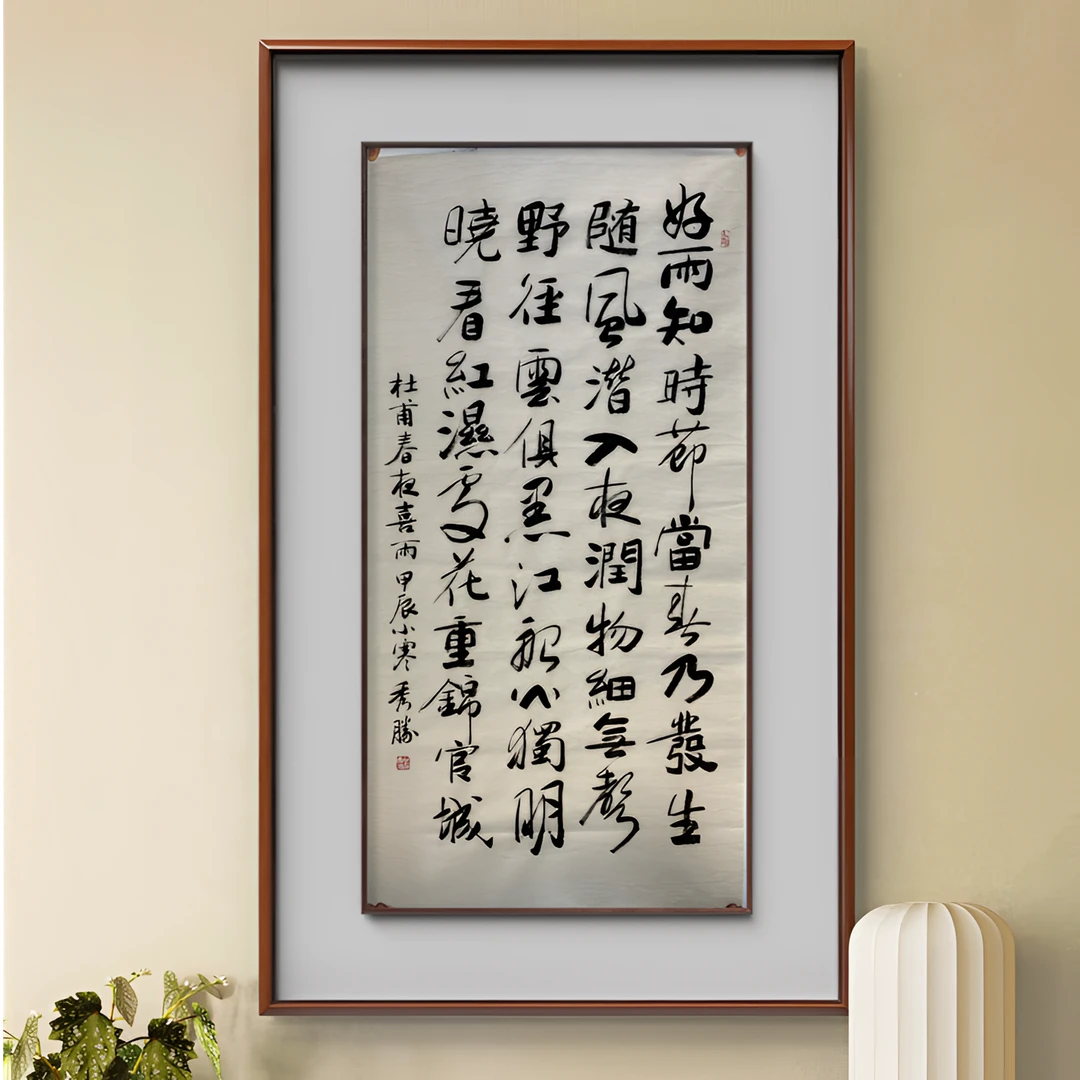 好雨知時節當春乃發生
随風潜入夜潤物細無聲
野徑雲俱黑江船火獨明
曉看紅濕處花重錦官城
杜甫春夜喜雨甲辰小寒秀勝